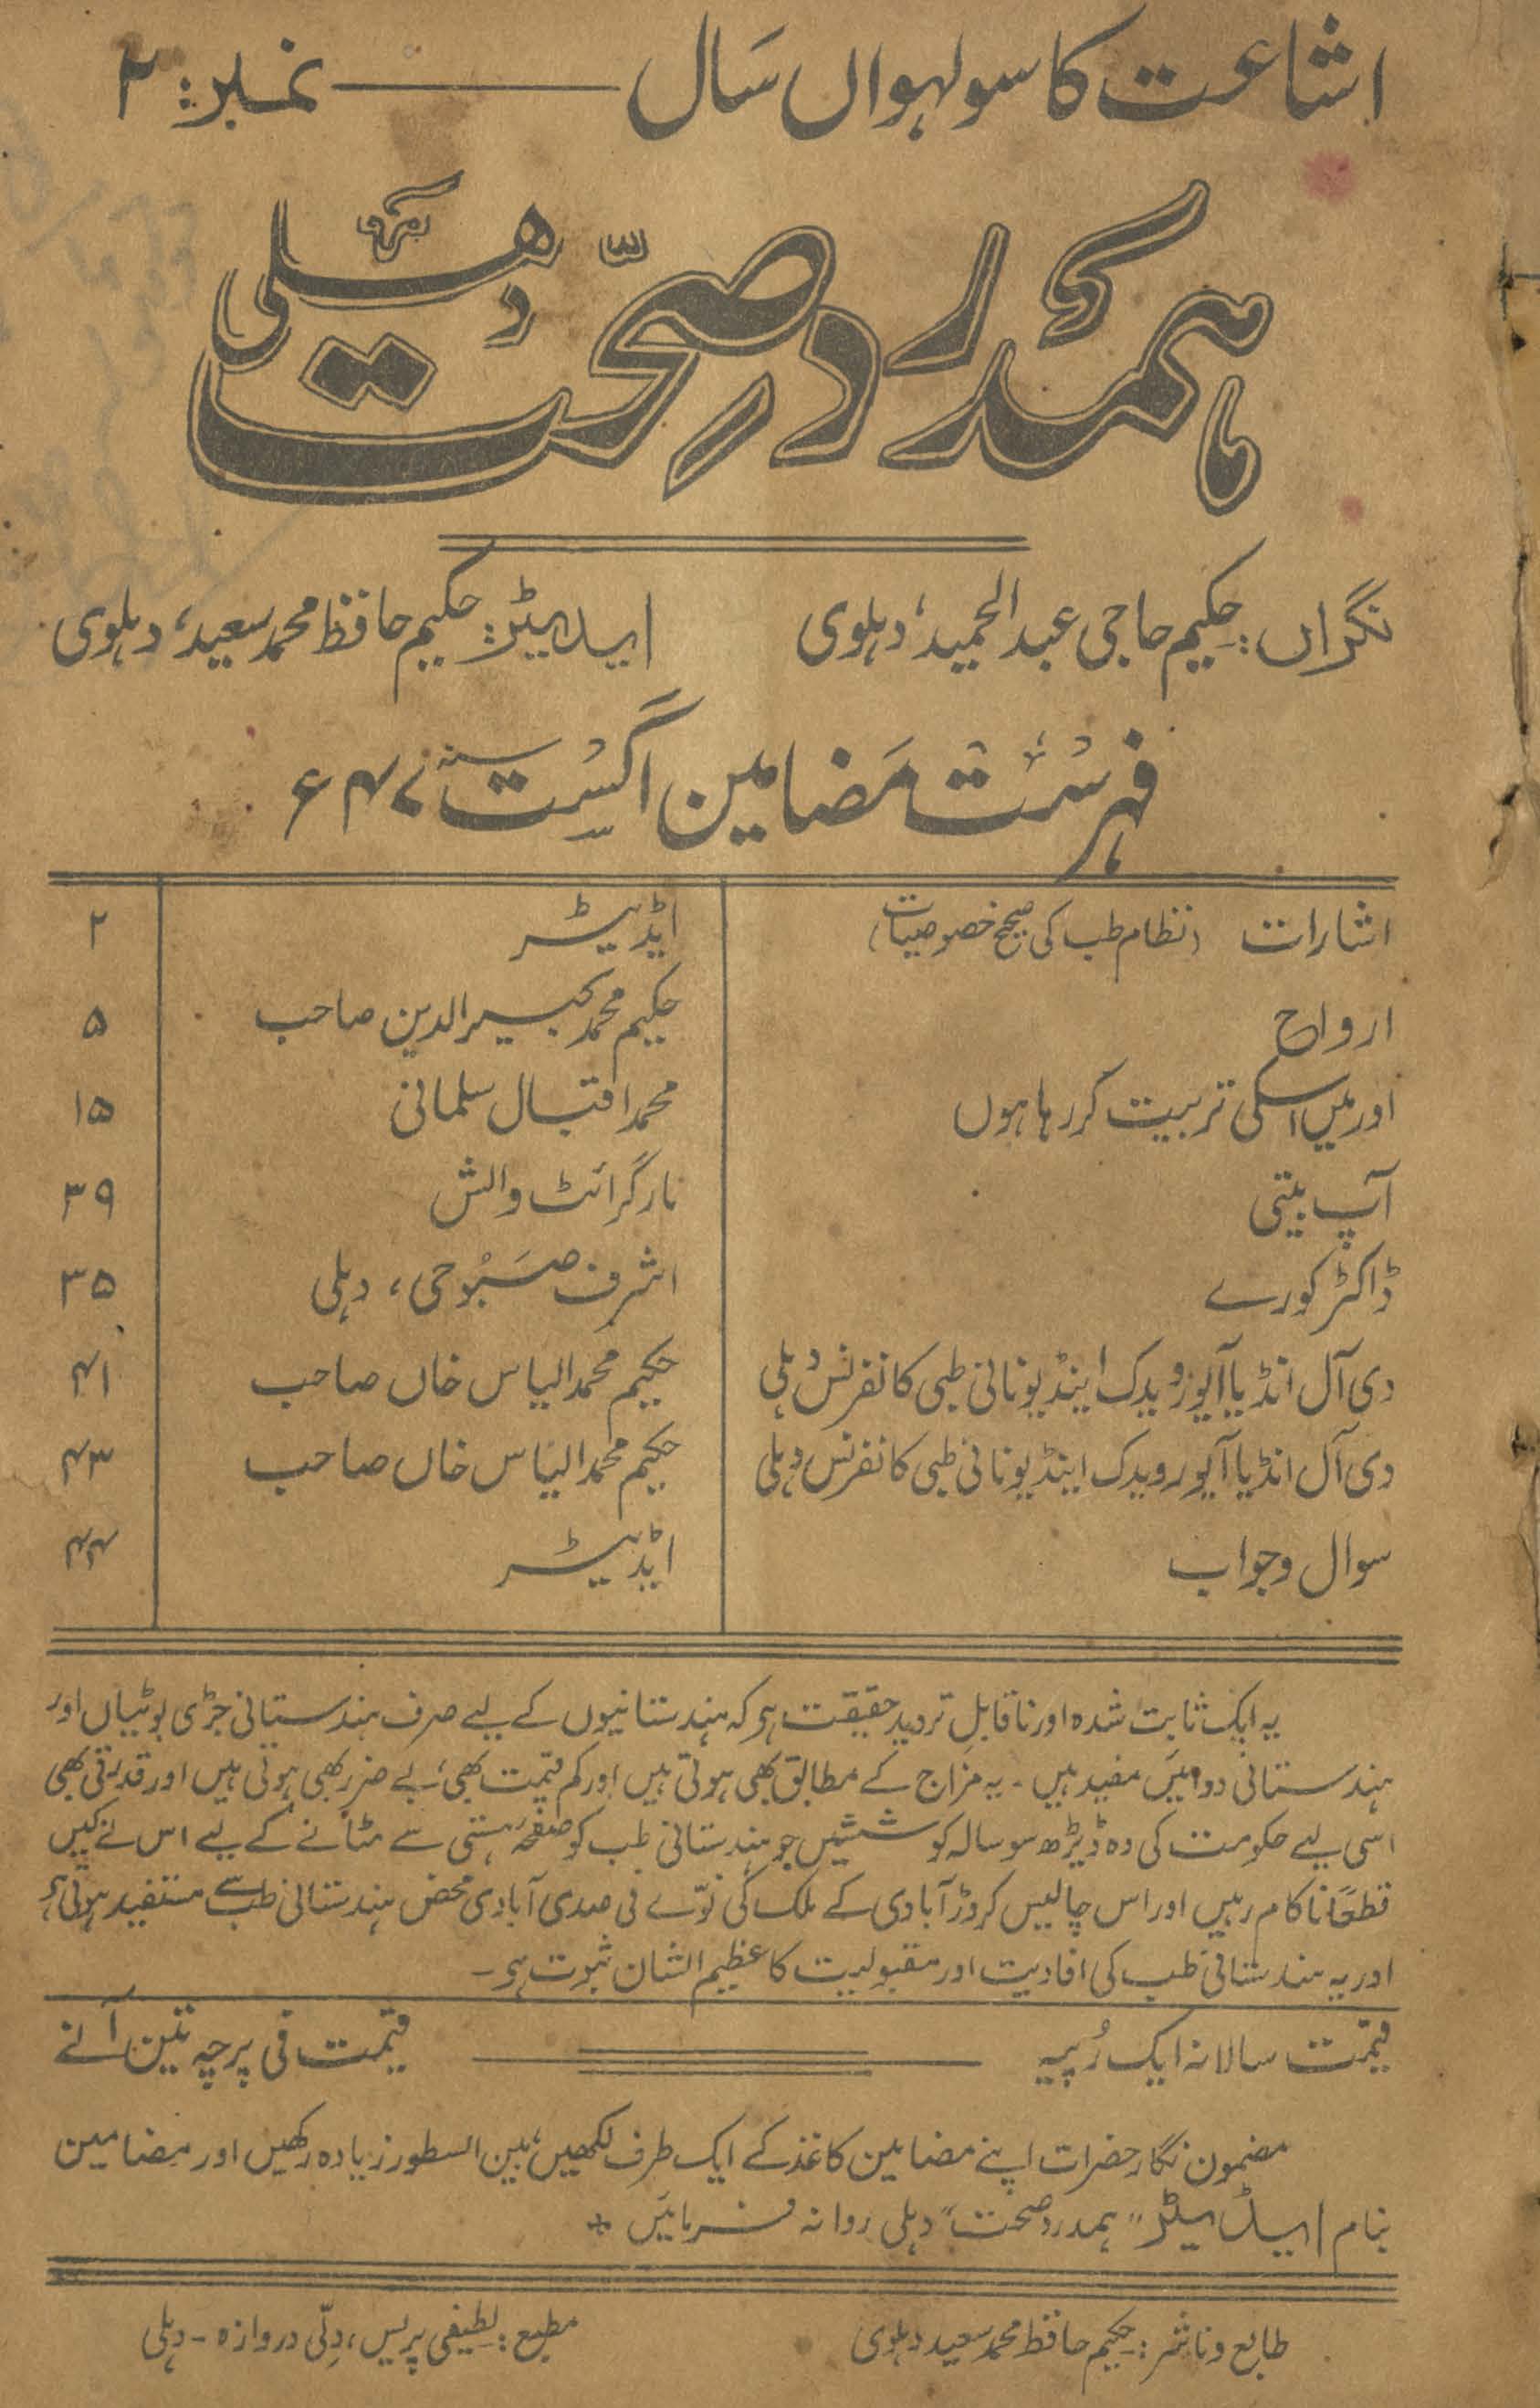 اشاعت کا سولہواں سَال ــــــــ نمبر: ۲
ہمدرد صحّت دہلی
نگراں: حکیم حاجی عبدالحمید، دہلوی ایڈیٹر: حکیم حافظ محمد سعید، دہلوی
فہرست مَضامین اگست سنہ ۴۷ء
اشارات (نظام طب کی صحیح خصوصیات) ایڈیٹر ۲
ارواح حکیم محمد کبیرالدین صاحب ۵
اور میں اسکی تربیت کر رہا ہوں محمد اقبال سلمانی ۱۵
آپ بیتی مارگرائٹ والش ۳۹
ڈاکٹر کورے اشرف صَبُوحی، دہلی ۳۵
دی آل انڈیا آیورویدک اینڈ یونانی طبی کانفرنس دہلی حکیم محمد الیاس خاں صاحب ۴۱
دی آل انڈیا آیورویدک اینڈ یونانی طبی کانفرنس دہلی حکیم محمد الیاس خاں صاحب ۴۳
سوال و جواب ایڈیٹر ۴۴
یہ ایک ثابت شدہ اور ناقابلِ تردید حقیقت ہو کہ ہندستانیوں کے لیے صرف ہندستانی جڑی بوٹیاں اور
ہندستانی دوائیں مفید ہیں ۔ یہ مزاج کے مطابق بھی ہوتی ہیں اور کم قیمت بھی، بے ضرر بھی ہوتی ہیں اور قدرتی بھی
اسی لیے حکومت کی وہ ڈیڑھ سو سالہ کوششیں جو ہندستانی طب کو صفحۂ ہستی سے مٹانے کے لیے اس نے کیں
قطعًا ناکام رہیں اور اس چالیس کروڑ آبادی کے ملک کی نوّے فی صدی آبادی محض ہندستانی طب سے مستفید ہوتی ہو
اور یہ ہندستانی طب کی افادیت اور مقبولیت کا عظیم الشان ثبوت ہو ۔
قیمت سالانہ ایک رُپیہ قیمت فی پرچہ تین آنے
مضمون نگار حضرات اپنے مضامین کاغذ کے ایک طرف لکھیں، بین السطور زیادہ رکھیں اور مضامین
بنام ایڈیٹر "ہمدرد صحت" دہلی روانہ فرمائیں *
طابع و ناشر: حکیم حافظ محمد سعید دہلوی مطبع: لطیفی پریس، دلّی دروازہ ۔ دہلی